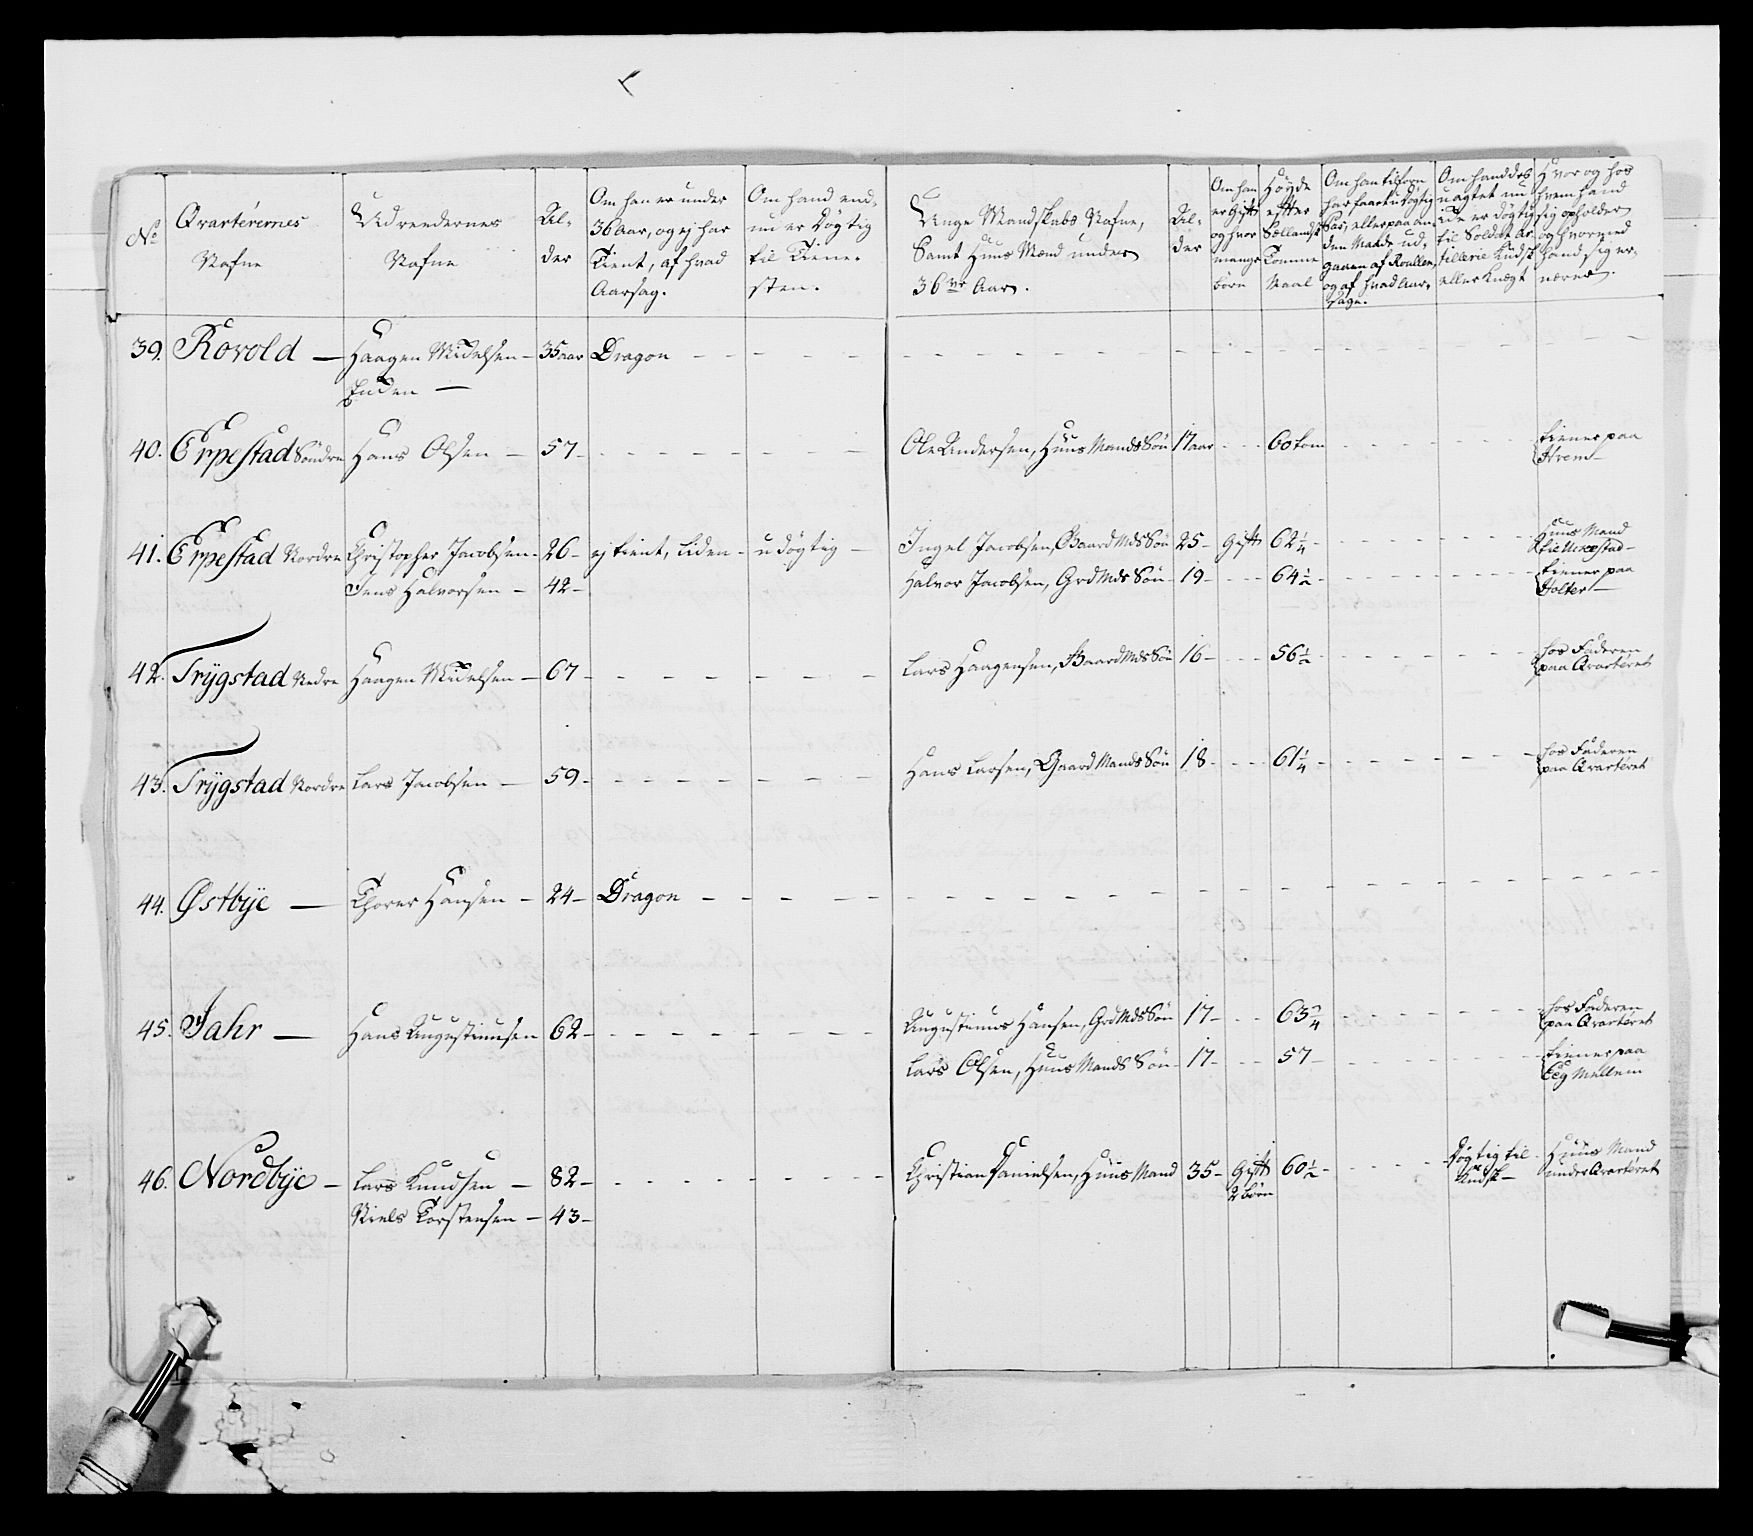 No
Qvarterernes
Nafne
Udrendernes
Nafne
Al-
der
Om han er under
36 Aar, og ej har
Tient, af hvad
Aarsag.
Om hand end,
nu er Døgtig
til Tiene-
sten.
Unge Mandskabs Nafne,
Samt Huus Mænd under
36 Aar.
Al-
der
Om han
er Gift
og hvor
mange
børn
Høyde
effter
Sællandsk
Tomme
Maal
Om han tilforn
har faaet udøgtig
Pas, eller paa an-
den Maade ud,
gaaen af Roullen,
og af hvad Aar,
sage.
Om hand des
uagtet nu
ike er døgtig
til Soldat Ar
tillerie Kudsk
eller Knægt
Hvor og hos
hvem hand
sig opholder
og hvorved
hand sig er,
nærer.
39. Rovold — Haagen Michelsen — 35 aar Dragon
Enden —
40. Erpestad Søndre Hans Olsen — 57 Ole Andersen, Huus Mands Søn 17 aar 60 tom tiener paa
Hrem
41. Erpestad Nordre Christopher Jacobsen 26 ej tient, liden udøgtig — Ingel Jacobsen, Gaard Mds Søn 25 Gift 62 1/4 Huus Mand
Jens Halvorsen — 42 Halvor Jacobsen, Grd Mds Søn 19 64 1/2 tiener paa
Holter
42. Trÿgstad Nedre Haagen Michelsen — 67 Lars Haagensen, Gaard Mds Søn 16 56 1/2 hos Faderen
paa Qvarteret
43. Trÿgstad Nordre Lars Jacobsen — 59 Hans Larsen, Gaard Mands Søn 18 61 1/4 hos Faderen
paa Qvarteret
44. Østbÿe — Thorer Hansen — 24 Dragon
45. Jahr — Hans Augustinusen 62 Augustinus Hansen, Grd Mds Søn 17 63 3/4 hos Faderen
paa Qvarteret
Lars Olsen, Huus Mands Søn 17 57 tiener paa
Eeg Mellem
46. Nordbÿe — Lars Knudsen — 82 Christian Danielsen, Huus Mand 35 Gift 60 1/2 Døgtig til Huus Mand
2 børn Kudsk under Qvarteret
Niels Torstensen — 43